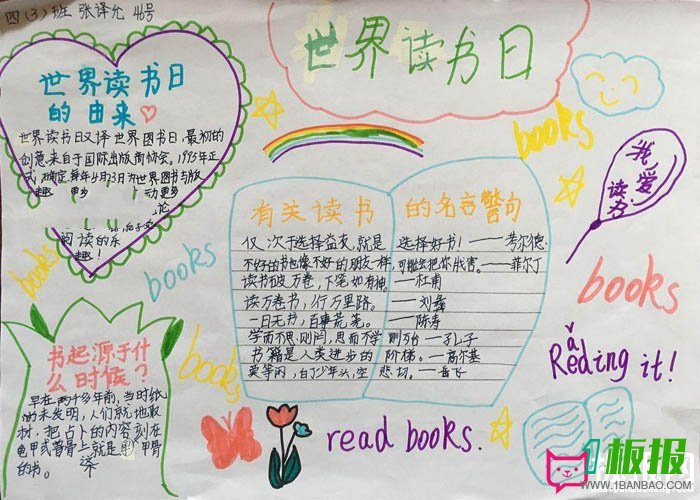 四(3)班 张译允 46号
世界读书日
世界读书日
的由来
世界读书日又译世界图书日,最初的
创意来自于国际出版商协会。1995年正
式确定每年4月23日为世界图书与版
趣 更多 动更多
论
阅读的乐
趣!
books
我爱
读书
有关读书 的名言警句
仅次于选择益友,就是 选择好书!——考尔德
不好的书也像不好的朋友一样,可能会把你戕害。——菲尔丁
读书破万卷,下笔如有神。——杜甫
读万卷书,行万里路。——刘彝
一日无书,百事荒芜。——陈寿
学而不思则罔,思而不学则殆——孔子
书籍是人类进步的阶梯。——高尔基
莫等闲,白了少年头,空悲切。——岳飞
books
books
books
books
书起源于什
么时候?
早在两千多年前,当时纸
尚未发明,人们就地取
材,把占卜的内容刻在
龟甲或兽骨上就是 甲骨
的书。
Reading it!
read books.
1板报
WWW.1BANBAO.COM